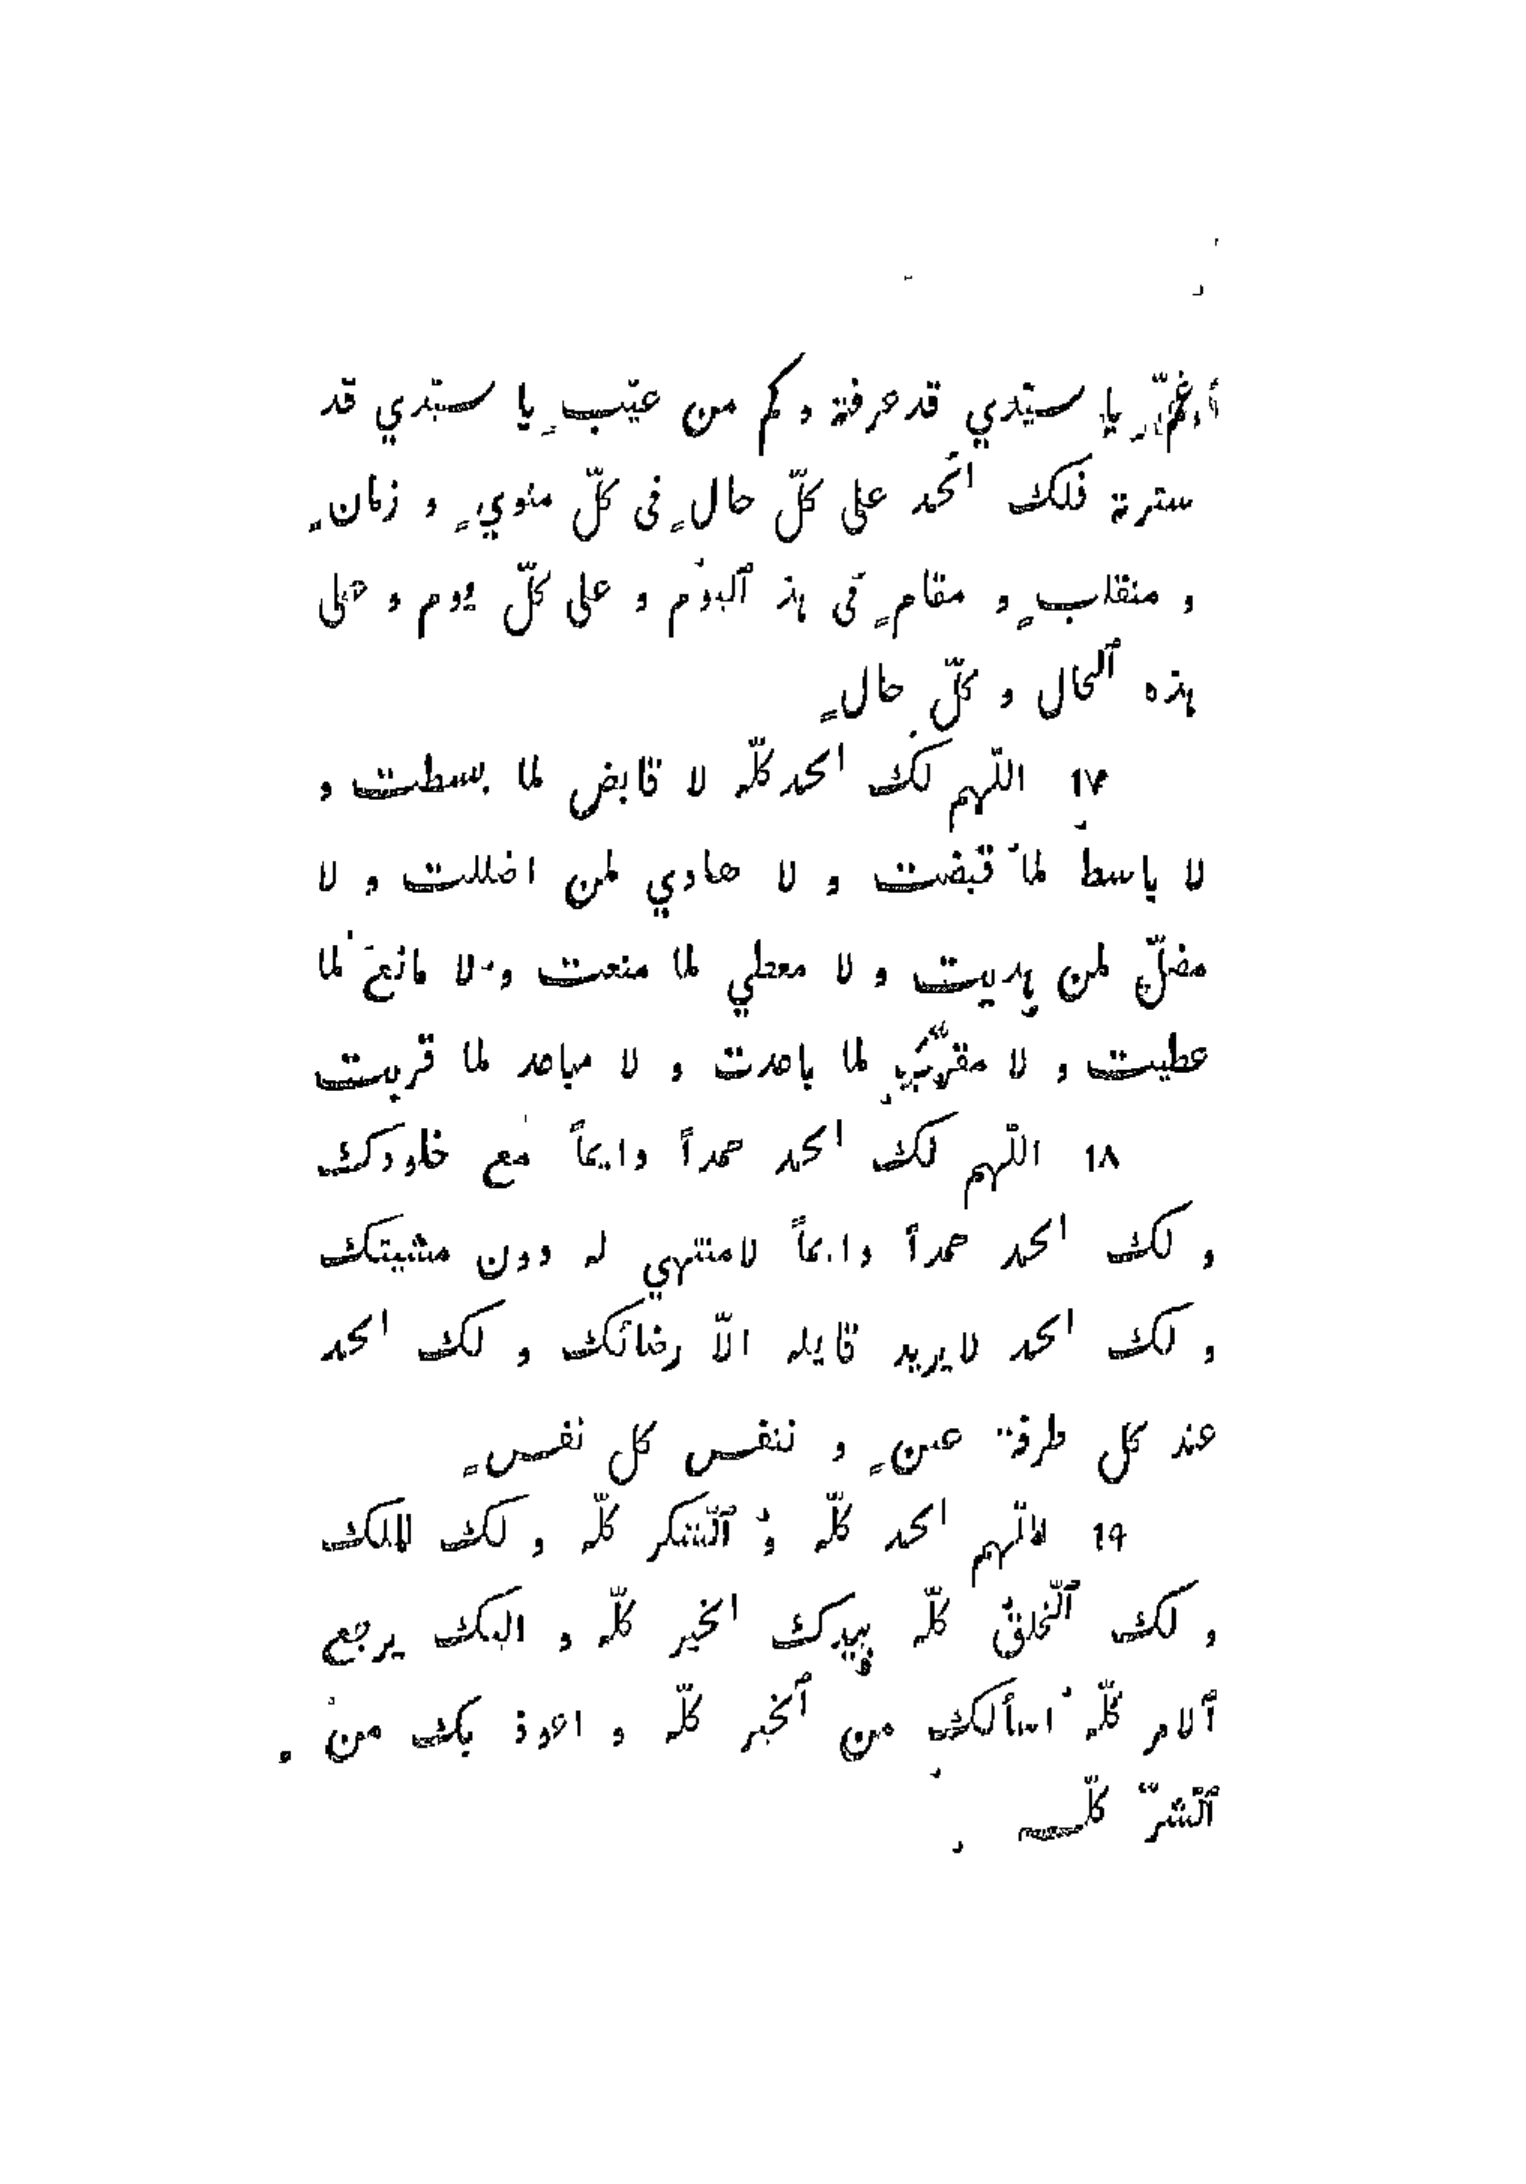 يا سيّدي قد عرفة و كم من عيّبٍ يا سيّدي قد
سترة فلك الحمد على كلّ حالٍ فى كلّ مثويٍ و زمانٍ
و منقلبٍ و مقامٍ فى هذ ٱليوم و على كلّ يوم و على
هذه ٱلحال و كلّ حالٍ
١٧ اللّهم لك الحمد كلّه لا قابض لما بسطت و
لا باسط لما قبضت و لا هادي لمن اضللت و لا
مضلّ لمن هديت و لا معطي لما منعت و لا مانع لما
عطيت و لا مقرّب لما باعدت و لا مباعد لما قربت
١٨ اللّهم لك الحمد حمداً دايماً مع خلودك
و لك الحمد حمداً دايماً لامنتهي له دون مشيتك
و لك الحمد لايريد قايله الّا رضائك و لك الحمد
عند كل طرفة عينٍ و تنفس كل نفسٍ
١٩ اللّهم الحمد كلّه و ٱلشّكر كلّه و لك الملك
و لك ٱلخلق كلّه بيدك الخير كلّه و اليك يرجع
ٱلامر كلّه اسألك من ٱلخير كلّه و اعوذ بك من
ٱلشّرّ كلّه